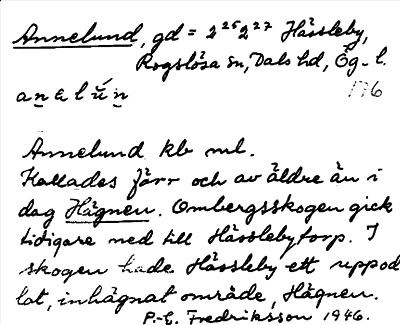 Annelund, gd = 2²⁶2²⁷ Hässleby,
Rogslösa sn, Dals hd, Ög. l.
anelún 176
Annelund kb ml.
Kallades förr och av äldre än i
dag Hägnen. Ombergsskogen gick
tidigare ned till Hässlebytorp. I
skogen hade Hässleby ett uppod
lat, inhägnat område, Hägnen.
P.-E. Fredriksson 1946.